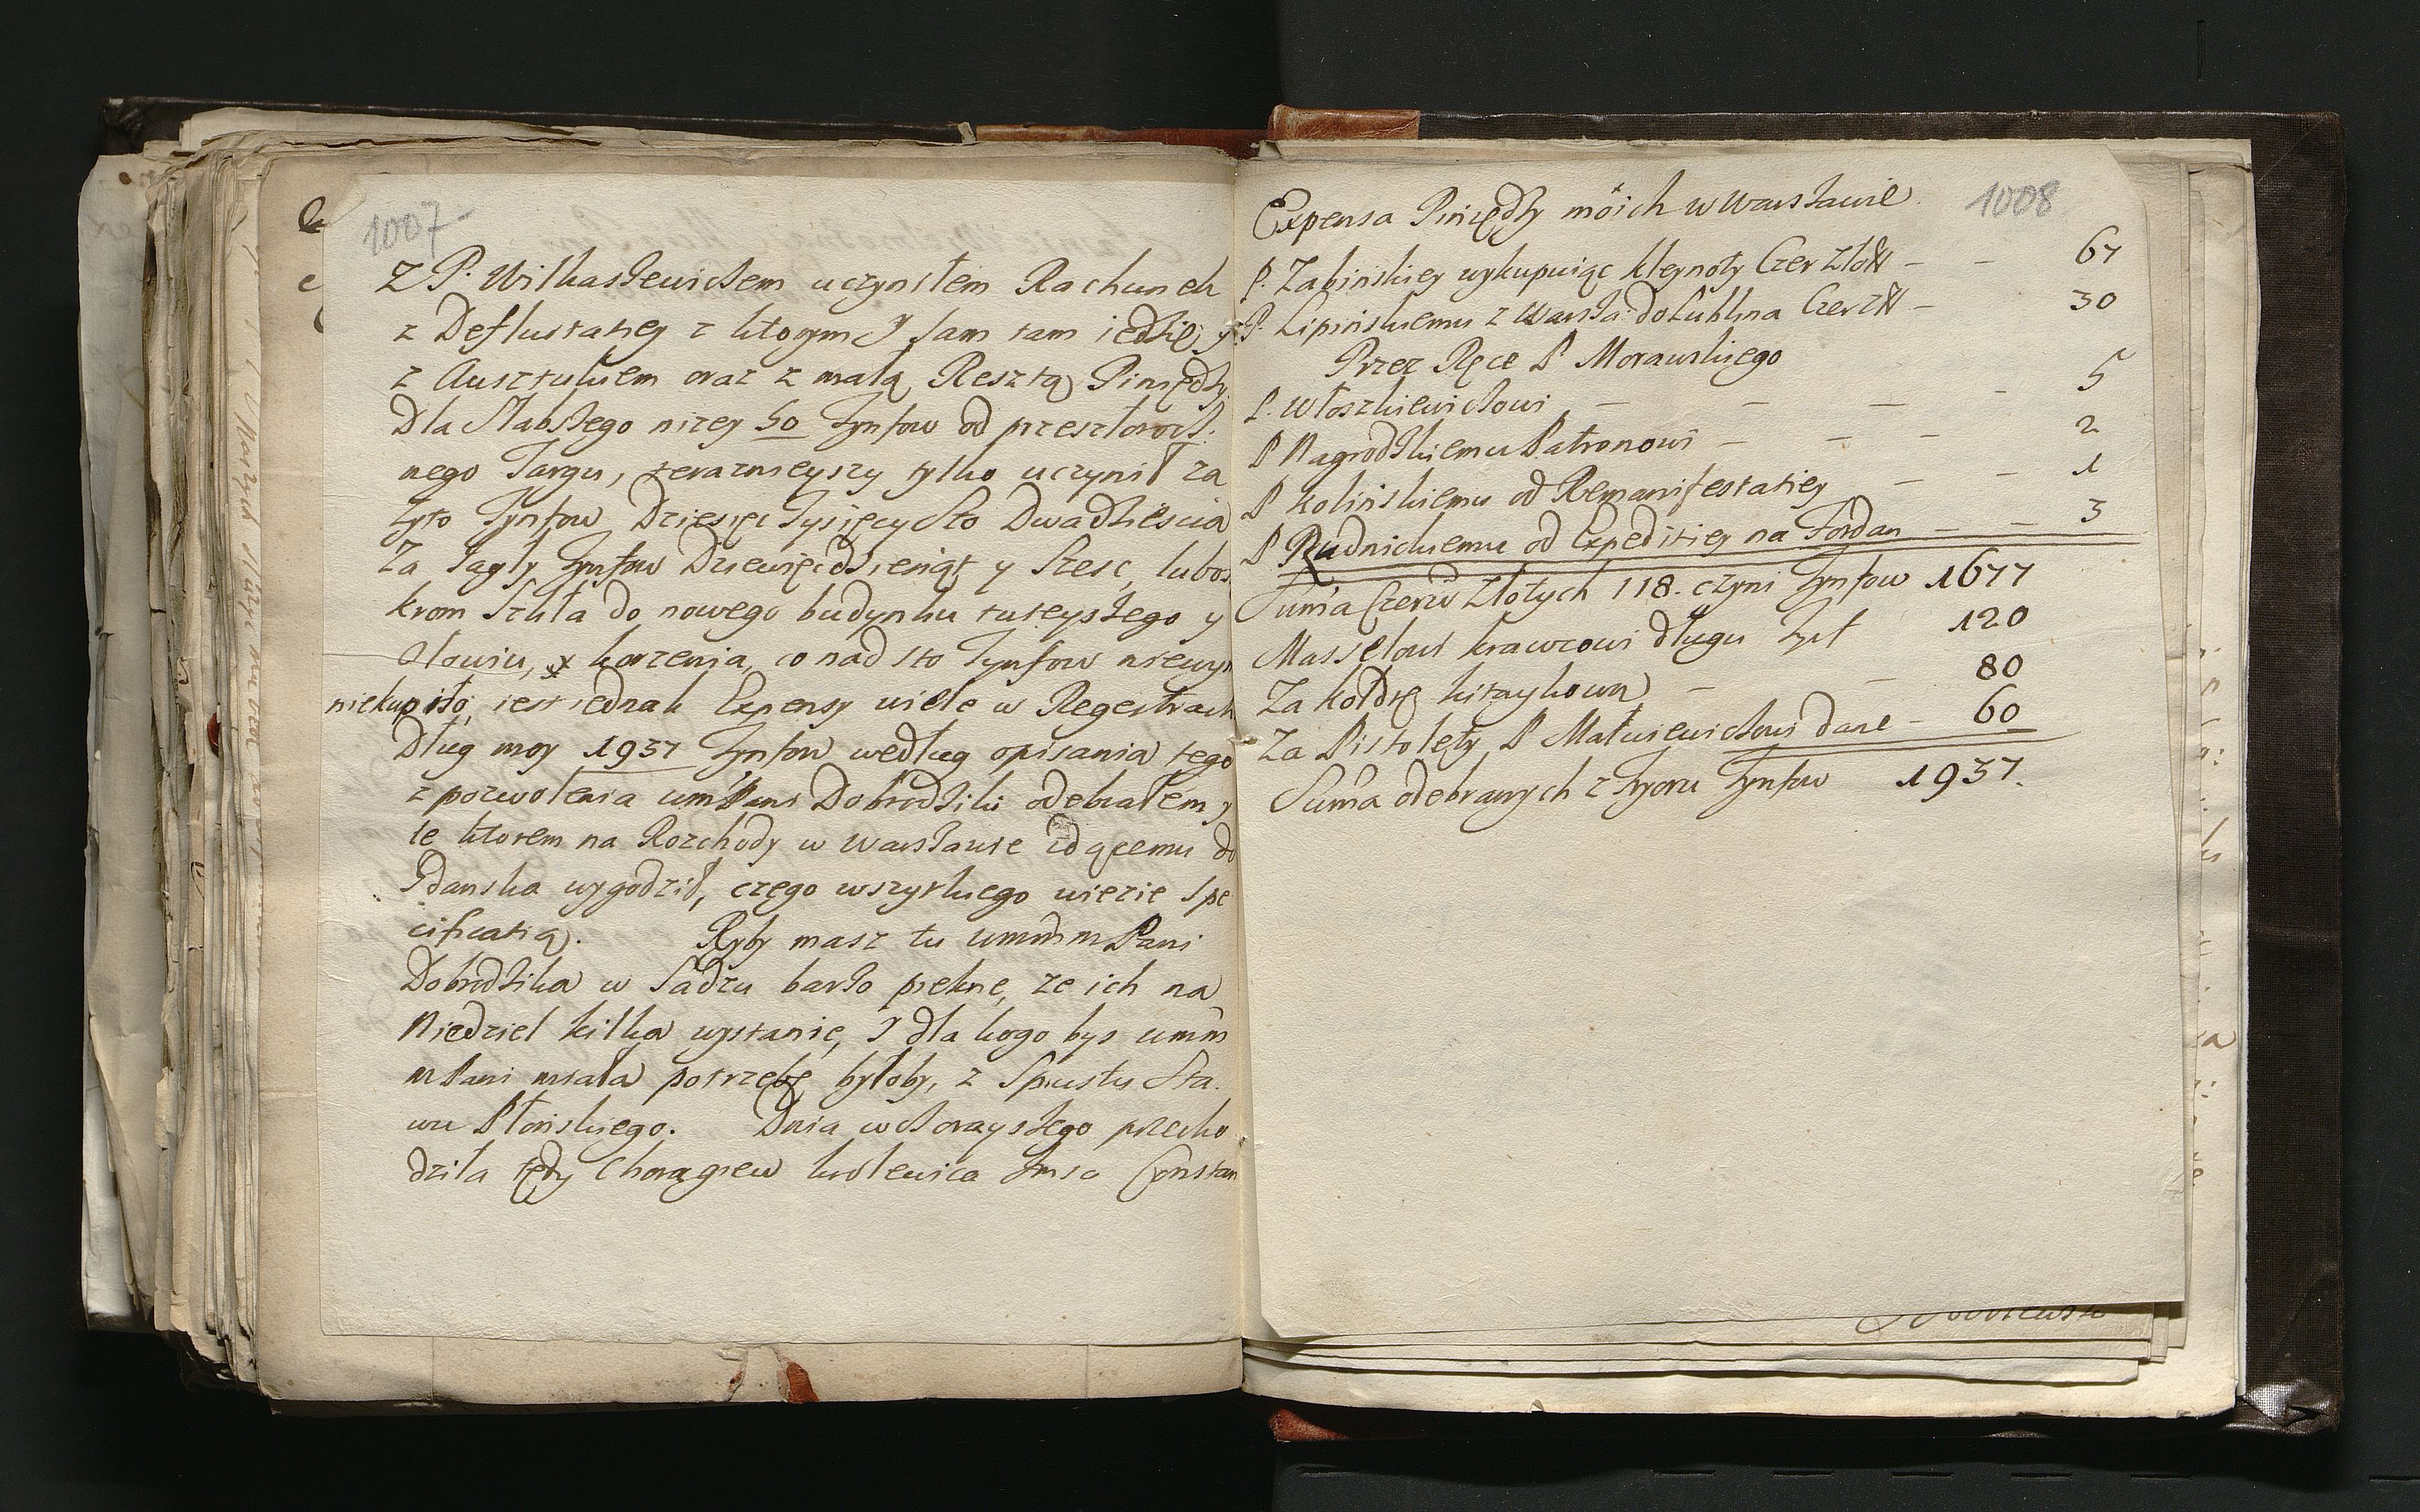 1007
Z P. Wilkaszewiczem uczyniłem Rachunek
z Defluitatiey z ktorym y sam tam iedzie, y
z Ausztukiem oraz z małą Resztą Piniędzy
Dla Słabszego nizey 50 Tynfow od przeszłorocz-
nego Targu, teraznieyszy tylko uczynił za
zyto Tynfow Dziesięc Tysięcy Sto Dwadziescia
Za Jagły Tynfow Dziewięcdziesiąt y szesc, lubo
krom Szkła do nowego budynku tuteyszego y
Ołowiu, y korzenia, co nad sto Tynfow niewyn
niekupiło, iest iednak Expensy wiele w Regestrach
Dług moy 1937 Tynfow według opisania tego
z pozwolenia wm Pani Dobrodziki odebrałem y
te ktorem na Rozchody w Warszawie idącemu do
Gdanska wygodził, czego wszytkiego wiezie Spe
cificatią. Ryby masz tu wmm m Pani
Dobrodzika w Sadzu barzo piekne, ze ich na
Niedziel kilka wystanie, I dla kogo bys wmm
m Pani miała potrzebę byłoby, z Spustu Sta-
wu Płońskiego. Dnia wczorayszego przecho
dziła tędy Chorągiew krolewica Jmsci Constan
1008
Expensa Piniędzy möich w Warszawie
P. Zabinskiey wykupuiąc kleynoty Czer Złott - - 67
P. Lipinskiemu z Warsza: do Lublina Czer Złł - 30
Przez Ręce P Morawskiego
P. Włoszkiewiczowi - - - - 5
P Nagrodzkiemu Patronowi - - - 2
P Kolińskiemu od Remanifestatiey - - 1
P Rudnickiemu od Expeditiey na Fordan - - 3
Suma Czerw Złotych 118. czyni Tynfow 1677
Masselowi krawcowi długu Tyf 120
Za kołdrę kitaykową - - 80
Za Pistolety P Matusiewiczowi dane - 60
Suma odebranych z Tyoru Tynfow 1937.